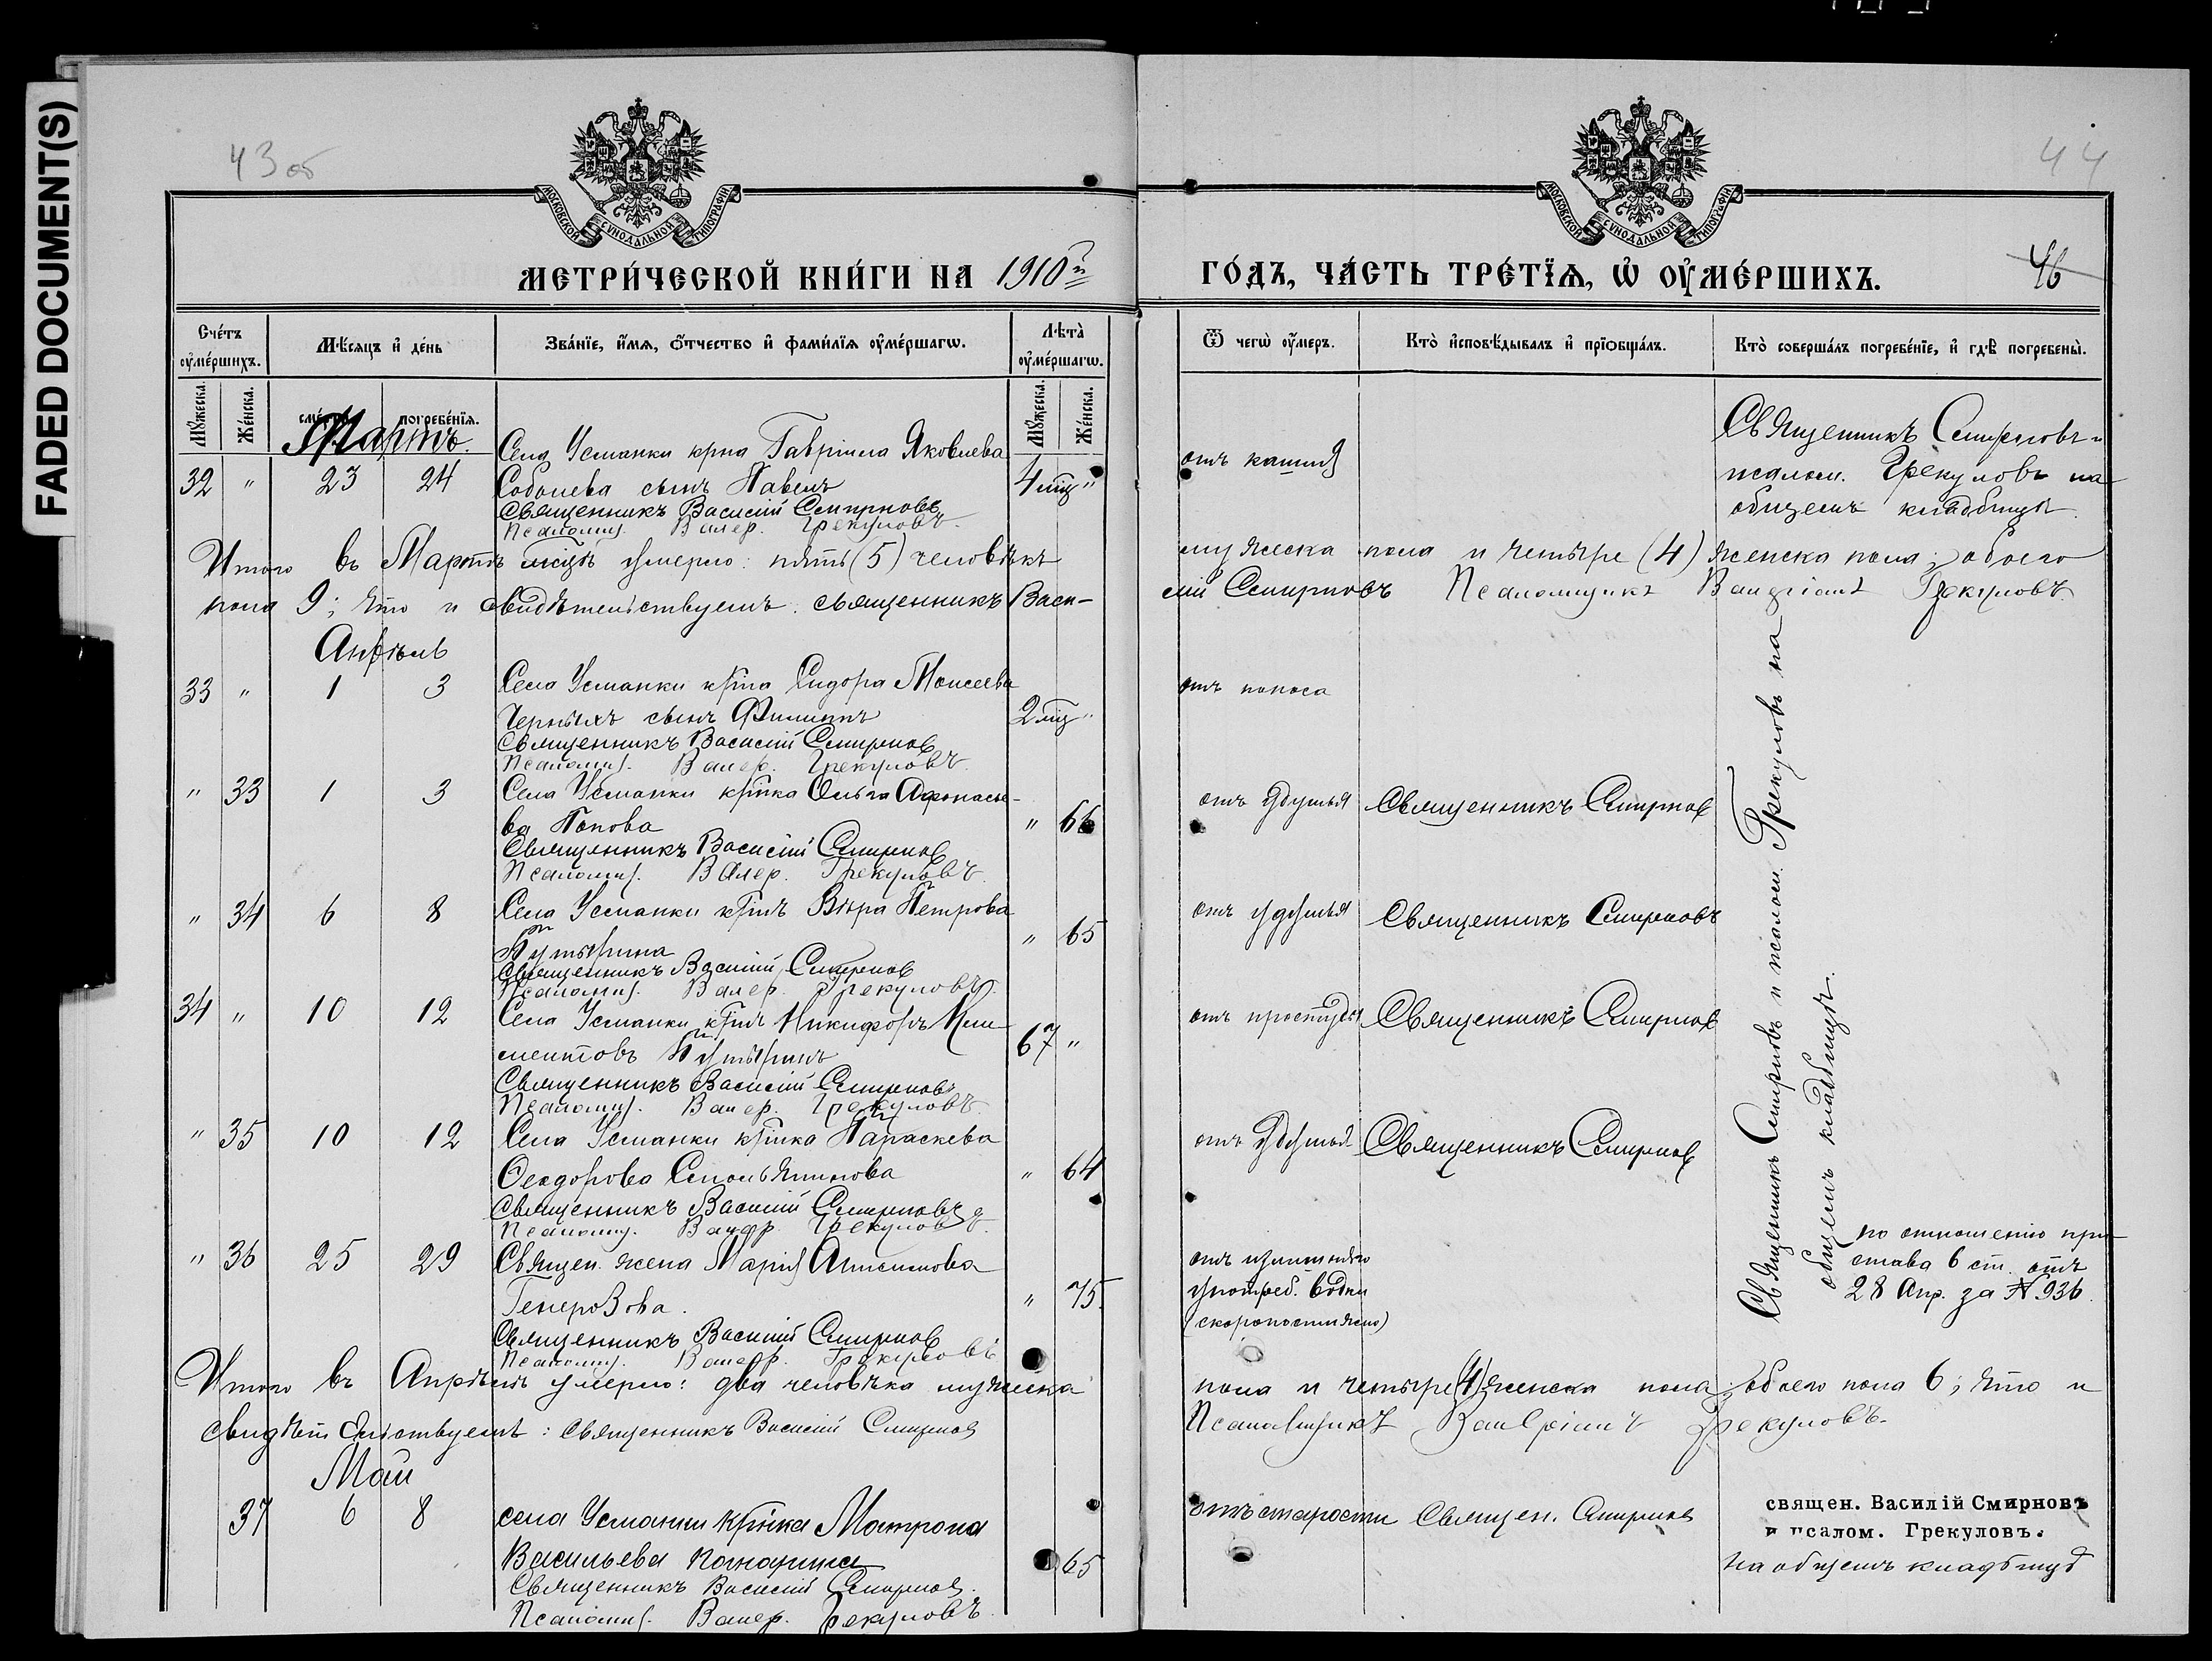 FADED DOCUMENT(S)
43 об
44
МОСКОВСКОЙ СѴНОДАЛЬНОЙ ТИПОГРАФІИ
МОСКОВСКОЙ СѴНОДАЛЬНОЙ ТИПОГРАФІИ
МЕТРИ́ЧЕСКОЙ КНИ́ГИ НА 1910й
ГО́ДЪ, ЧА́СТЬ ТРЕ́ТІѦ, Ѡ҆ ОУ҆МЕ́РШИХЪ.
46
Сче́тъ оу҆ме́ршихъ.
Мѣ́сяцъ и҆ де́нь
Зва́нїе, и҆́мѧ, о҆́тчество и҆ фами́лїѧ оу҆ме́ршагѡ.
Лѣта̀ оу҆ме́ршагѡ.
Ѿ чегѡ̀ оу҆́меръ.
Кто̀ и҆сповѣ́дывалъ и҆ прїѡбща́лъ.
Кто̀ соверша́лъ погребе́нїе, и҆ гдѣ̀ погребены̀.
Мꙋ́жеска.
Же́нска.
сме́рти.
погребе́нїѧ.
Мꙋ́жеска.
Же́нска.
Мартъ.
Села Усманки крна Гавріила Яковлева
32 " 23 24 Соболева сынъ Павелъ 4 мц "
Священникъ Василій Смирновъ
Псаломщ. Валер. Грекуловъ.
отъ кашля
Священникъ Смирновъ и
псалом. Грекуловъ на
общемъ кладбищѣ.
Итого въ Мартѣ мсцѣ умерло: пять (5) человѣкъ
мужеска пола и четыре (4) женска пола; обоего
пола 9; что и свидѣтельствуемъ: священникъ Васи-
лій Смирновъ Псаломщикъ Валеріанъ Грекуловъ.
Апрѣль
33 " 1 3 Села Усманки кріна Сидора Моисеева
Черныхъ сынъ Филиппъ 2 мц "
Священникъ Василій Смирновъ
Псаломщ. Валер. Грекуловъ.
отъ поноса
" 33 1 3 Села Усманки крінка Ольга Афонасье-
ва Попова " 66
Священникъ Василій Смирновъ
Псаломщ. Валер. Грекуловъ.
отъ удушья Священникъ Смирновъ
" 34 6 8 Села Усманки Вѣра Петрова
Путырина " 65
Священникъ Василій Смирновъ
Псаломщ. Валер. Грекуловъ.
отъ удушья Священникъ Смирновъ
34 " 10 12 Села Усманки крінъ Никифоръ Кли-
ментовъ Путыринъ 67 "
Священникъ Василій Смирновъ
Псаломщ. Валер. Грекуловъ.
отъ простуды Священникъ Смирновъ
" 35 10 12 Села Усманки крінка Параскева
Ѳеодорова " 64
Священникъ Василій Смирновъ
Псаломщ. Валер. Грекуловъ.
отъ удушья Священникъ Смирновъ
" 36 25 29 Священ. жена Марія Анисимова
Генерозова. " 75.
Священникъ Василій Смирновъ
Псаломщ. Валер. Грекуловъ
отъ излишняго
употреб. водки
(скоропостижно)
Священникъ Смирновъ и псалом. Грекуловъ на
общемъ кладбищѣ.
по отношенію при-
става 6 ст. отъ
28 Апр. за № 936.
Итого въ Апрѣлѣ умерло: два человѣка мужеска
пола и четыре (4) женска пола; обоего пола 6; что и
свидѣтельствуемъ: священникъ Василій Смирновъ
Псаломщикъ Валеріанъ Грекуловъ.
Май
37 6 8 села Усманки крінка Матрона
Васильева 65
Священникъ Василій Смирновъ.
Псаломщ. Валер. Грекуловъ.
отъ старости Священ. Смирновъ
священ. Василій Смирновъ
и псалом. Грекуловъ.
на общемъ кладбищѣ